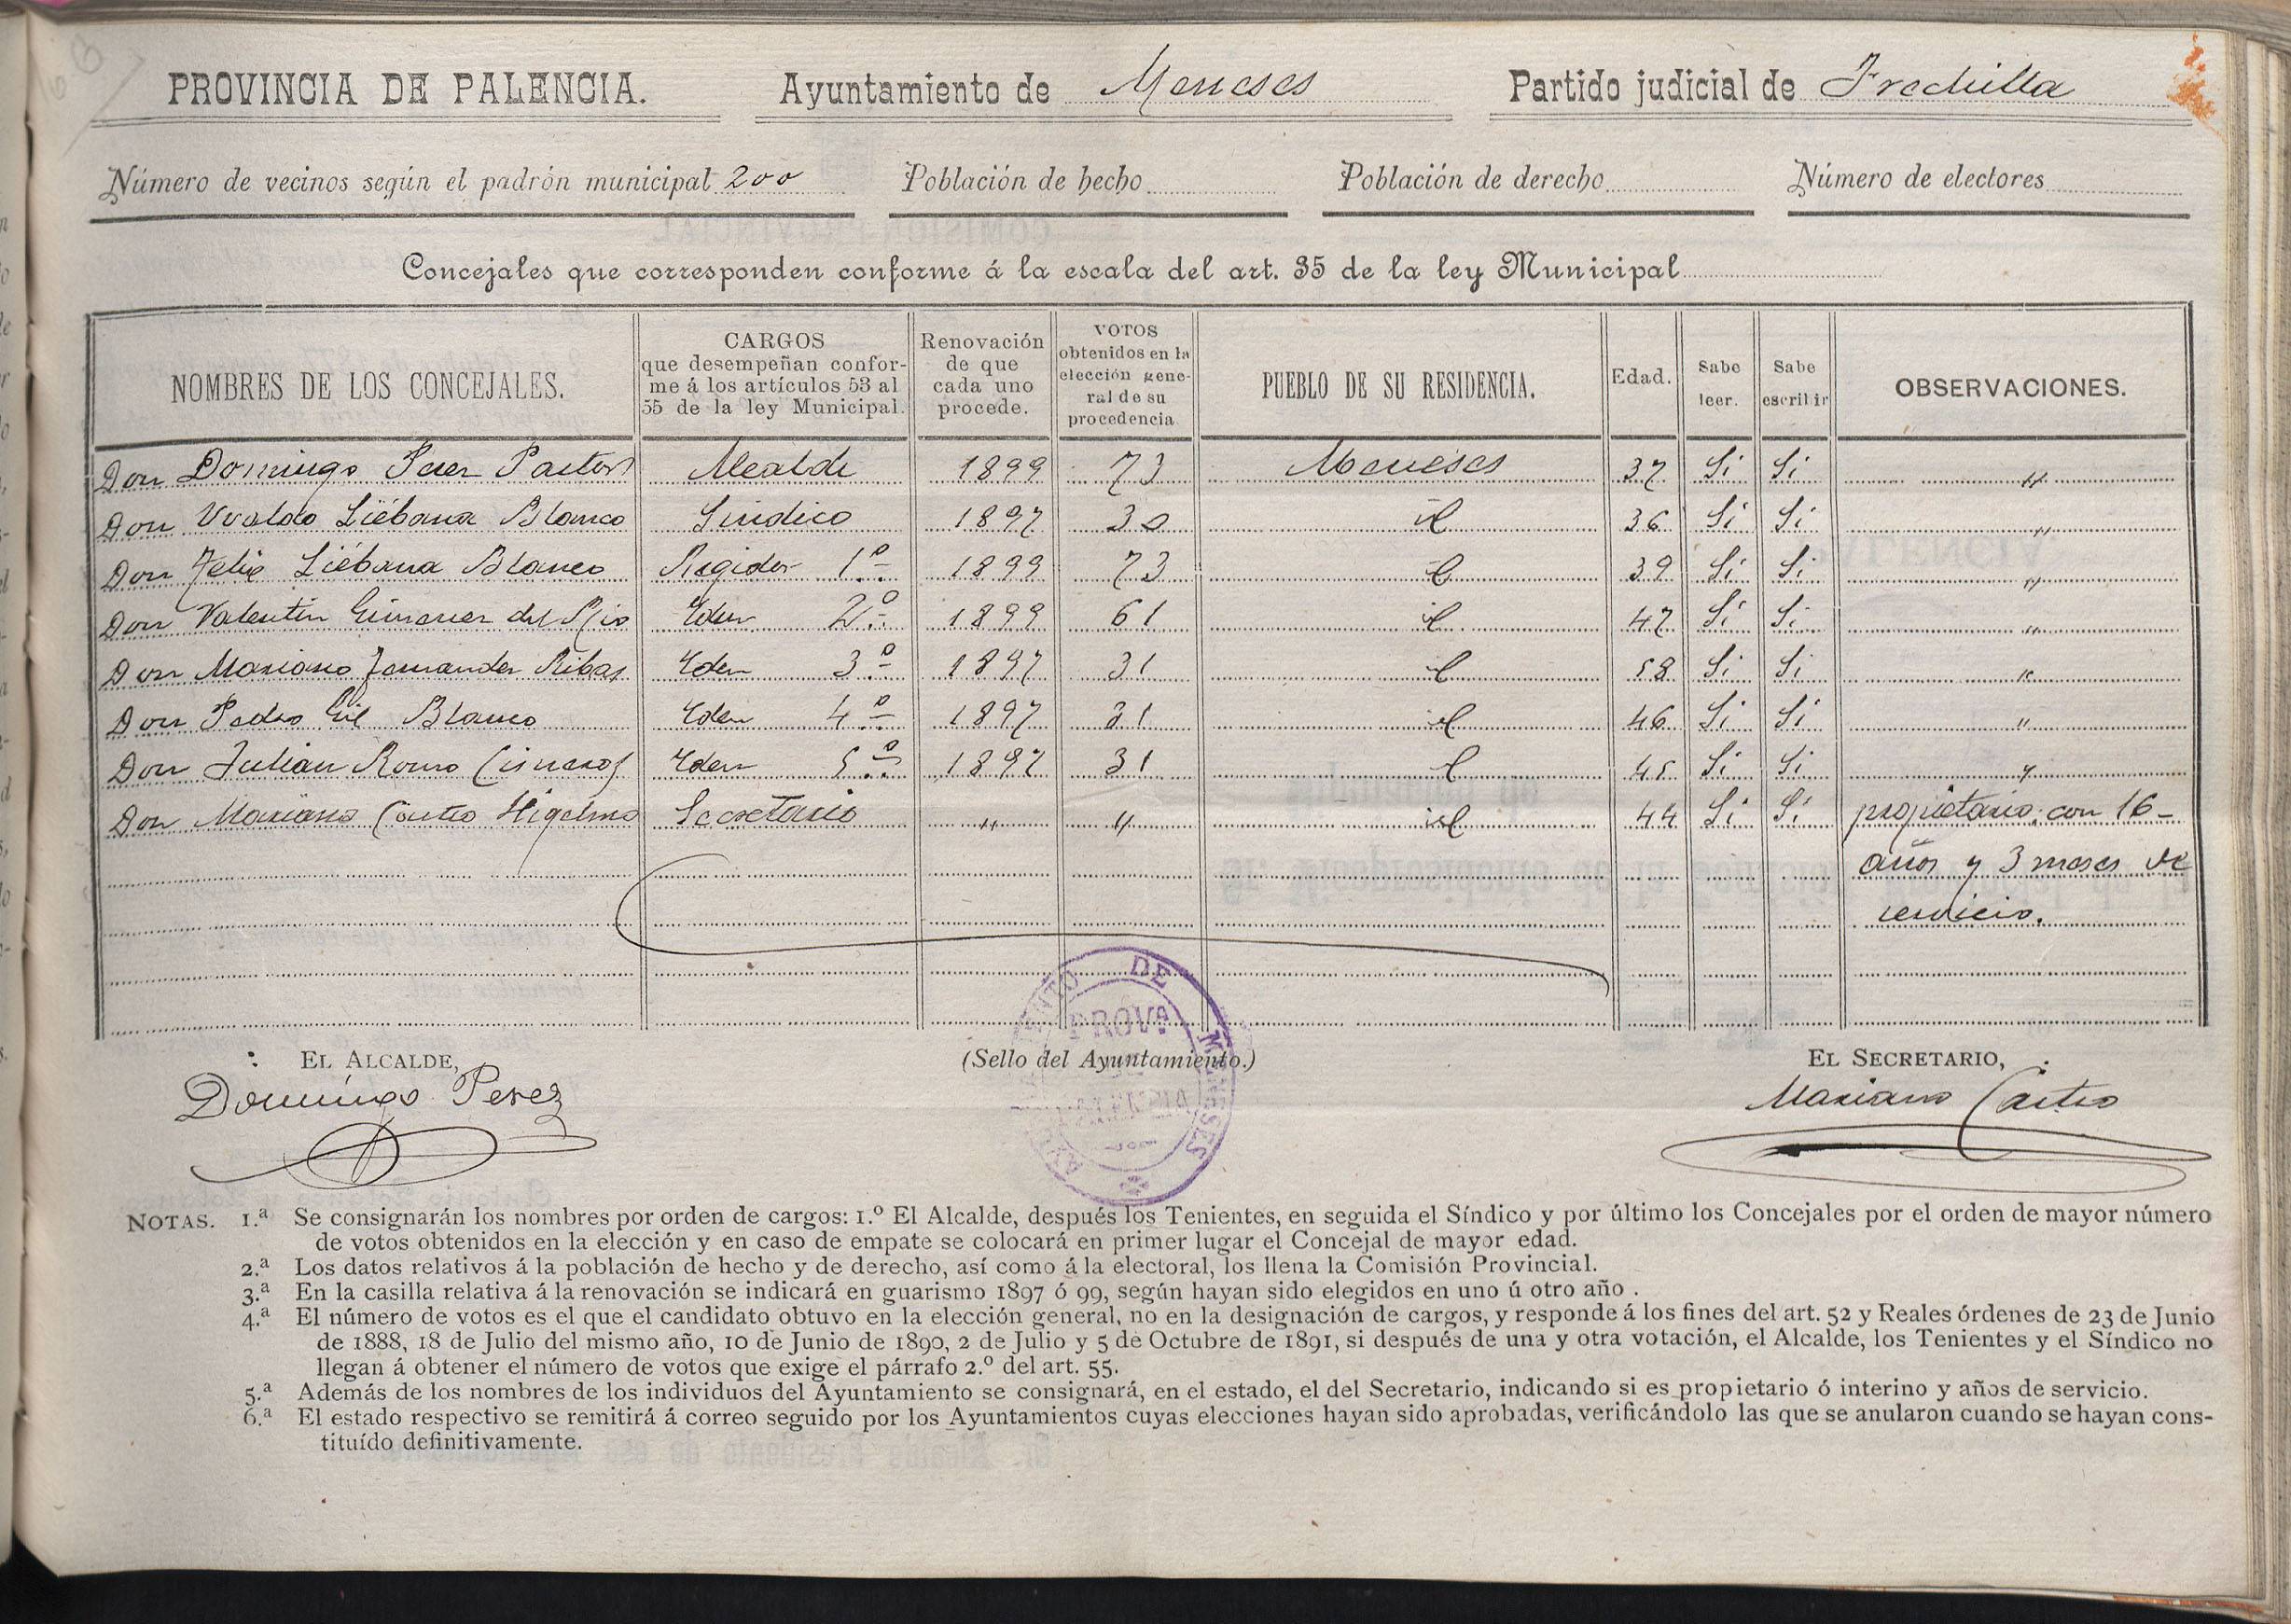 PROVINCIA DE PALENCIA. Ayuntamiento de Meneses Partido judicial de Frechilla
Número de vecinos según el padrón municipal 200 Población de hecho Población de derecho Número de electores
Concejales que corresponden conforme á la escala del art. 35 de la ley Municipal
NOMBRES DE LOS CONCEJALES.
CARGOS
que desempeñan confor-
me á los artículos 53 al
55 de la ley Municipal.
Renovación
de que
cada uno
procede.
VOTOS
obtenidos en la
elección gene-
ral de su
procedencia
PUEBLO DE SU RESIDENCIA.
Edad.
Sabe
leer.
Sabe
escribir
OBSERVACIONES.
Don Domingo Perez Pastor Alcalde 1899 73 Meneses 37 Si Si "
Don Uvaldo Liébana Blanco Sindico 1897 30 id 36 Si Si "
Don Felix Liébana Blanco Regidor 1º 1899 73 id 39 Si Si "
Don Valentin Gimenez del Rio Yden 2º 1899 61 id 47 Si Si "
Don Mariano Fernandez Ribas Yden 3º 1897 31 id 58 Si Si "
Don Pedro Gil Blanco Yden 4º 1897 31 id 46 Si Si "
Don Julian Romo Cisneros Yden 5º 1897 31 id 45 Si Si "
Don Mariano Castro Higelmo Secretario " " id 44 Si Si propietario; con 16
años y 3 meses de
servicio.
EL ALCALDE, (Sello del Ayuntamiento.) EL SECRETARIO,
Domingo Perez Mariano Castro
DE MENESES
PROVª
NOTAS. 1.ª Se consignarán los nombres por orden de cargos: 1.º El Alcalde, después los Tenientes, en seguida el Síndico y por último los Concejales por el orden de mayor número
de votos obtenidos en la elección y en caso de empate se colocará en primer lugar el Concejal de mayor edad.
2.ª Los datos relativos á la población de hecho y de derecho, así como á la electoral, los llena la Comisión Provincial.
3.ª En la casilla relativa á la renovación se indicará en guarismo 1897 ó 99, según hayan sido elegidos en uno ú otro año .
4.ª El número de votos es el que el candidato obtuvo en la elección general, no en la designación de cargos, y responde á los fines del art. 52 y Reales órdenes de 23 de Junio
de 1888, 18 de Julio del mismo año, 10 de Junio de 1890, 2 de Julio y 5 de Octubre de 1891, si después de una y otra votación, el Alcalde, los Tenientes y el Síndico no
llegan á obtener el número de votos que exige el párrafo 2.º del art. 55.
5.ª Además de los nombres de los individuos del Ayuntamiento se consignará, en el estado, el del Secretario, indicando si es propietario ó interino y años de servicio.
6.ª El estado respectivo se remitirá á correo seguido por los Ayuntamientos cuyas elecciones hayan sido aprobadas, verificándolo las que se anularon cuando se hayan cons-
tituído definitivamente.